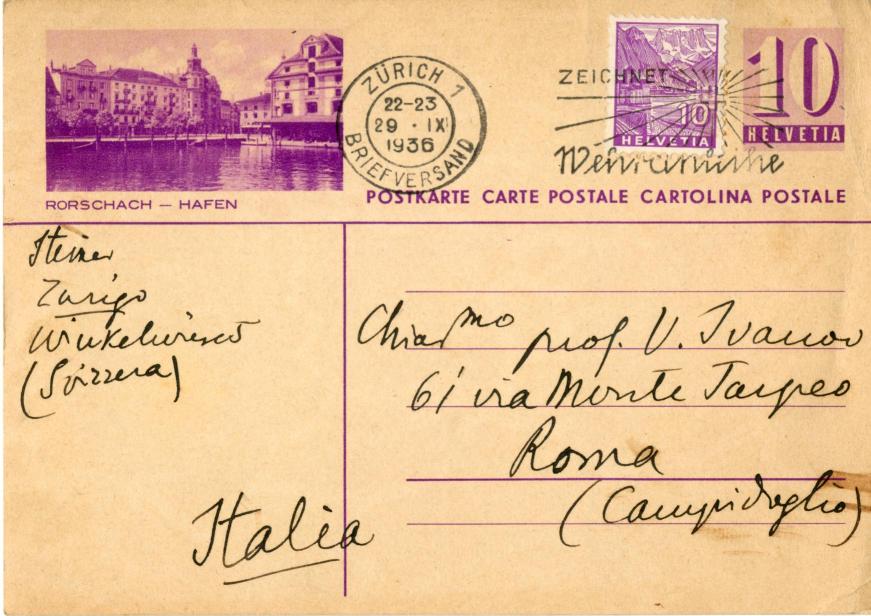 RORSCHACH — HAFEN
ZÜRICH 1
22-23
29 · IX
1936
BRIEFVERSAND
ZEICHNET
Wehranleihe
10
HELVETIA
10
HELVETIA
POSTKARTE CARTE POSTALE CARTOLINA POSTALE
Steiner
Zurigo
(Svizzera)
Italia
Chiar^mo prof. V. Ivanov
61 via Monte Tarpeo
Roma
(Campidoglio)